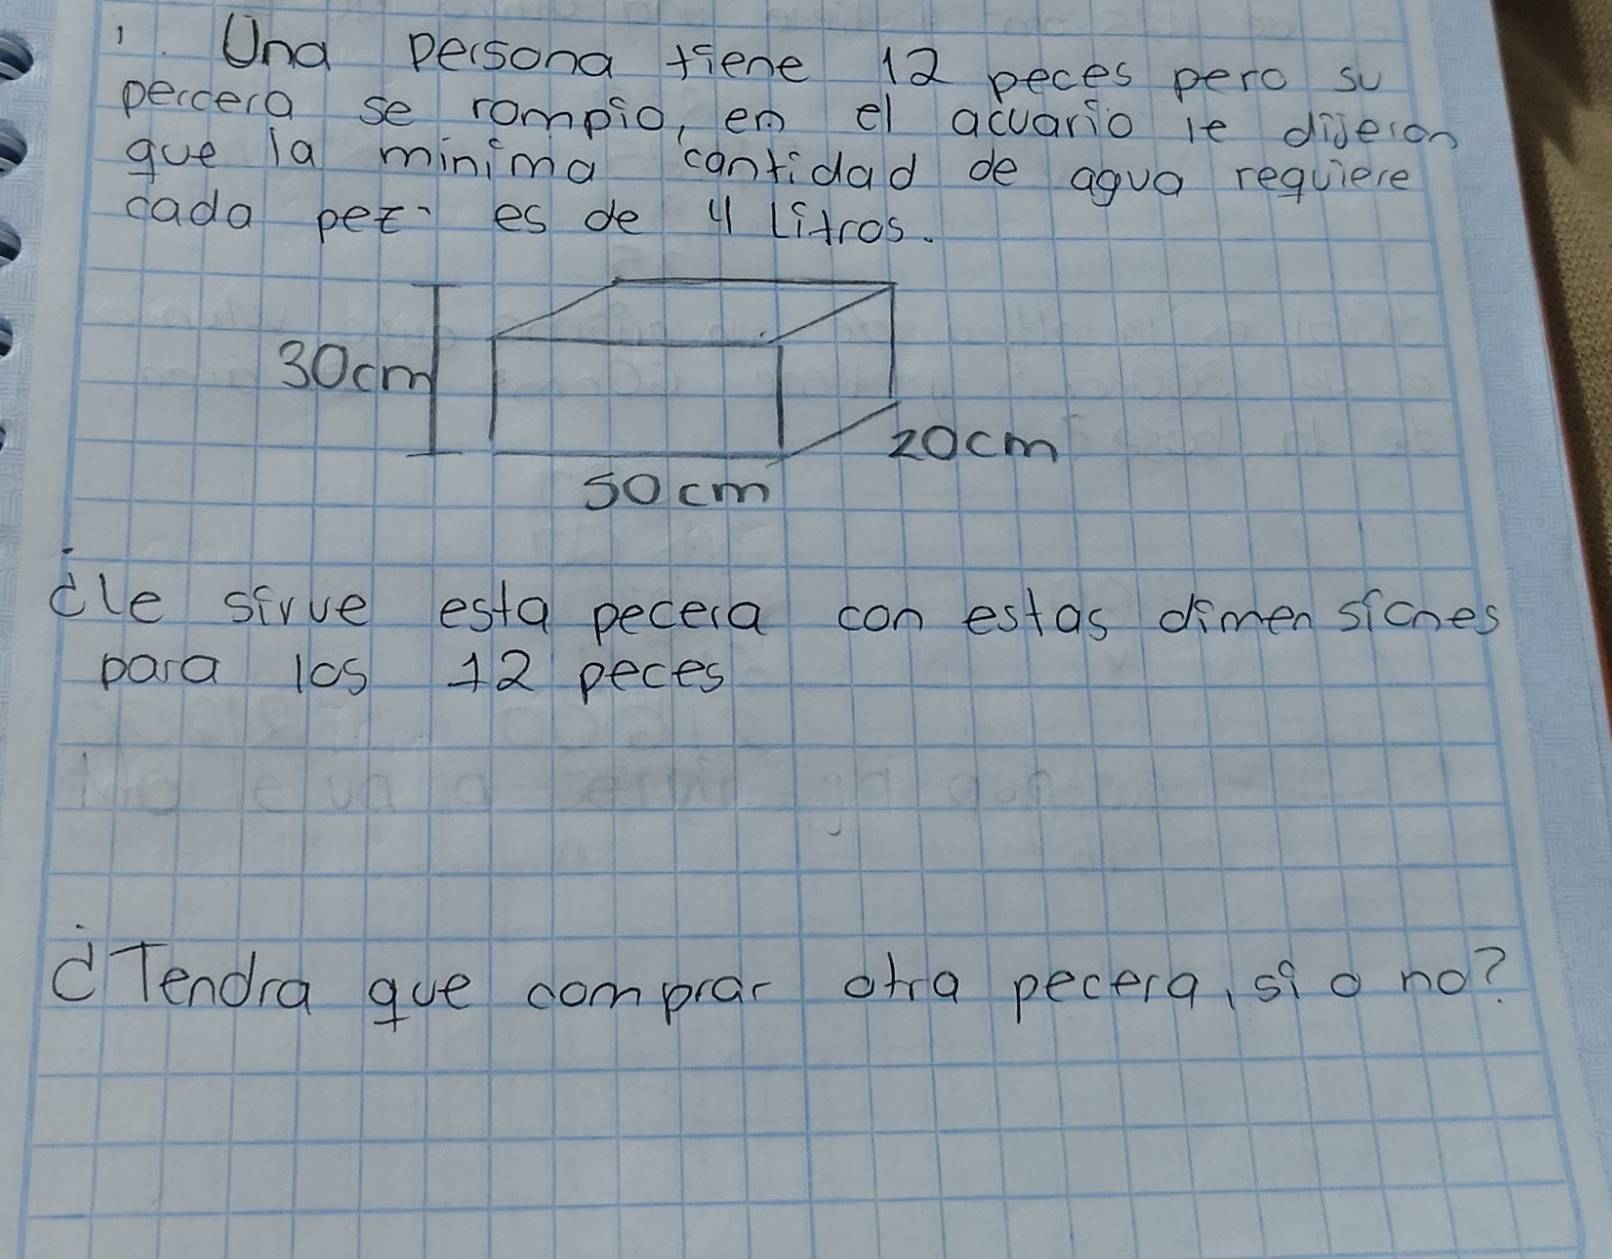 1. Una persona tiene 12 peces pero su
percera se rompio, en el acuario le dijeron
que la minima cantidad de agua requiere
cada pez es de 4 litros.
30cm
20cm
50cm
¿le sirve esta pecera con estas dimensiones
para los 12 peces
¿Tendra que comprar otra pecera, si o no?